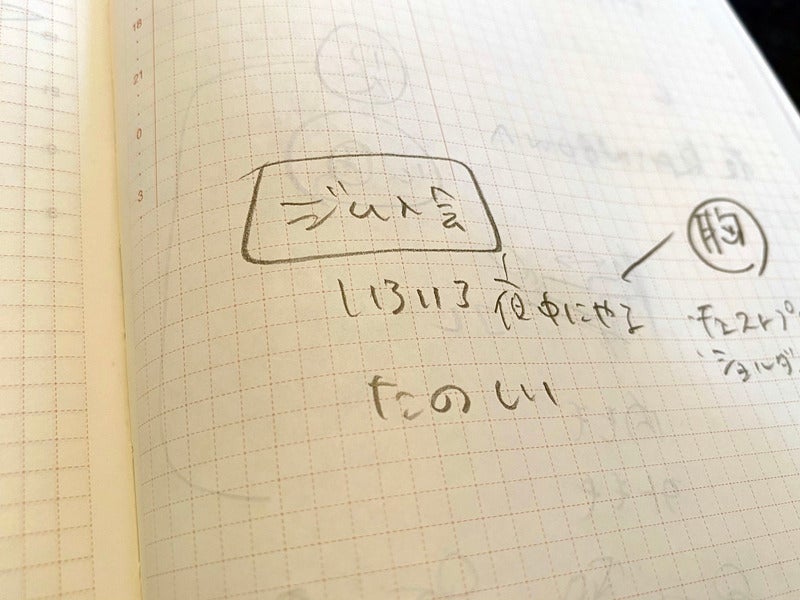 18
21
0
3
ジム入会
いろいろ夜中にやる
たのしい
胸
・チェストプ
・ショルダ